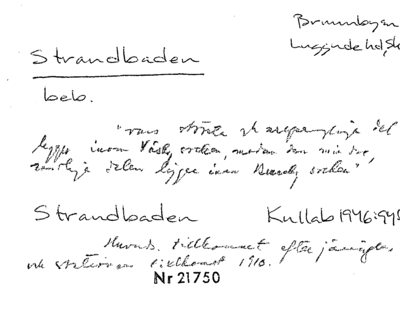 Brunnbyn
Luggude hd, Sk
Strandbaden
beb.
"vars största och ursprungliga del
ligger inom Väsby socken, medan den mindre,
delen ligger inom Brunnby socken"
Strandbaden Kullab 1946:945
Huvuds. tillkommet efter järnvägen
och stationens tillkomst 1910.
Nr 21750